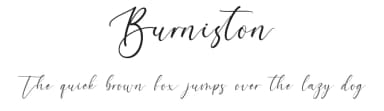 Burniston
The quick brown fox jumps over the lazy dog